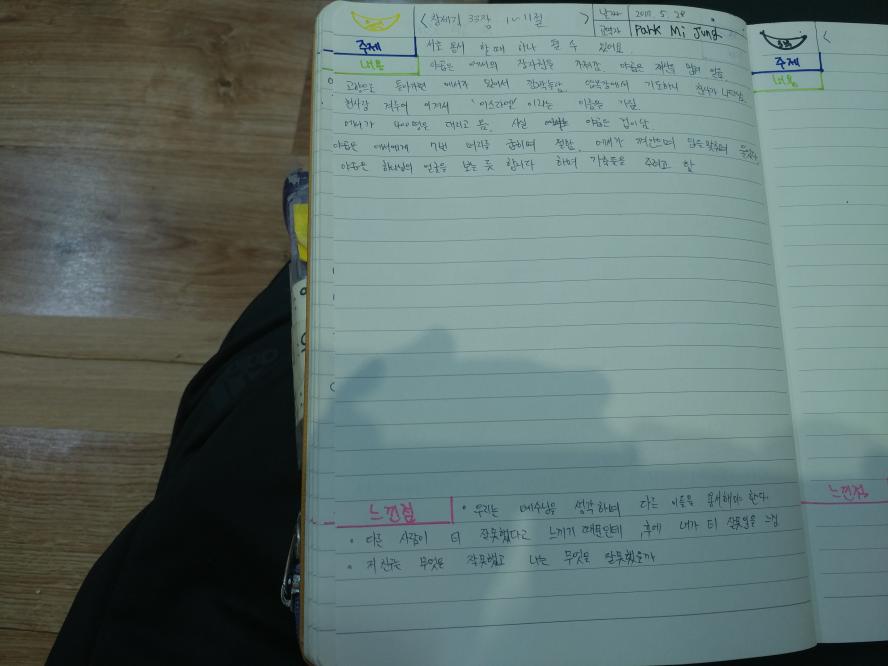 < 창세기 33장 1~11절 >
날짜 2017. 5. 28
Park Mi Jung
주제 서로 용서 할 때 하나 될 수 있어요.
내용 야곱은 에서의 장자권을 가져감. 야곱은 재산을 많이 얻음.
고향으로 돌아가면 에서가 있어서 기도하니 천사가 나타남.
천사랑 겨루어 이겨서 '이스라엘' 이라는 이름을 가짐.
에서가 400명을 데리고 옴. 사실 야곱은 겁이 남.
야곱은 에서에게 7번 머리를 굽히며 절함. 에서가 껴안으며 입을 맞추며
야곱은 하나님의 얼굴을 보는 듯 합니다 하며 가축들을 주려고 함
느낀점 • 우리는 예수님을 생각하며 다른 이들을 용서해야 한다.
• 다른 사람이 더 잘못했다고 느끼기 때문인데, 후에 내가 더 잘못임을 느낌
• 저 친구는 무엇을 잘못했고 나는 무엇을 잘못했을까
<
주제
내용
느낀점